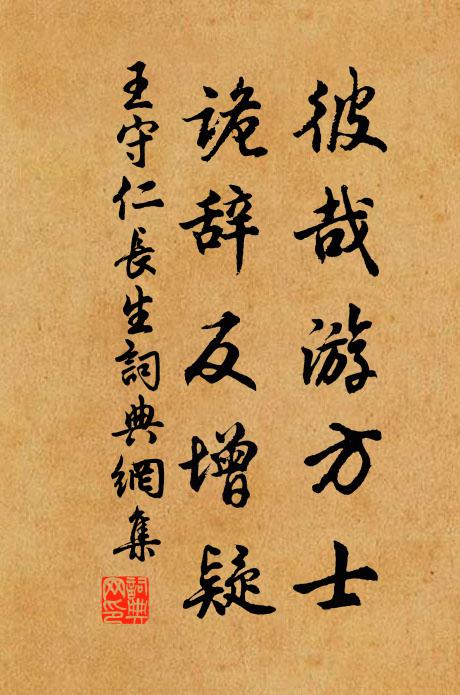 彼哉游方士
詭辞反增疑
王守仁長生詞典網集
詞典網印